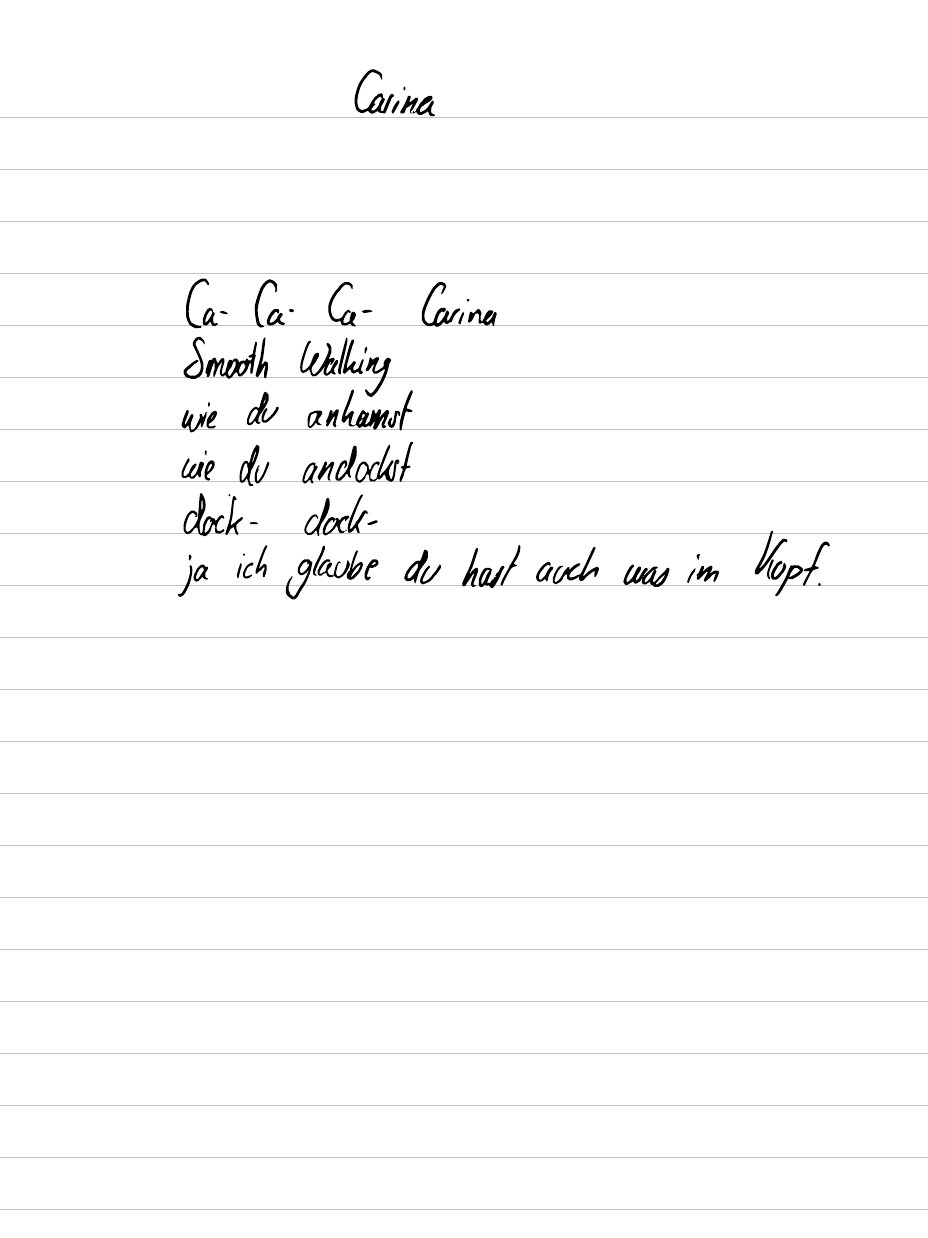 Carina
Ca- Ca- Ca- Carina
Smooth Walking
wie du ankamst
wie du andockst
dock- dock-
ja ich glaube du hast auch was im Kopf.